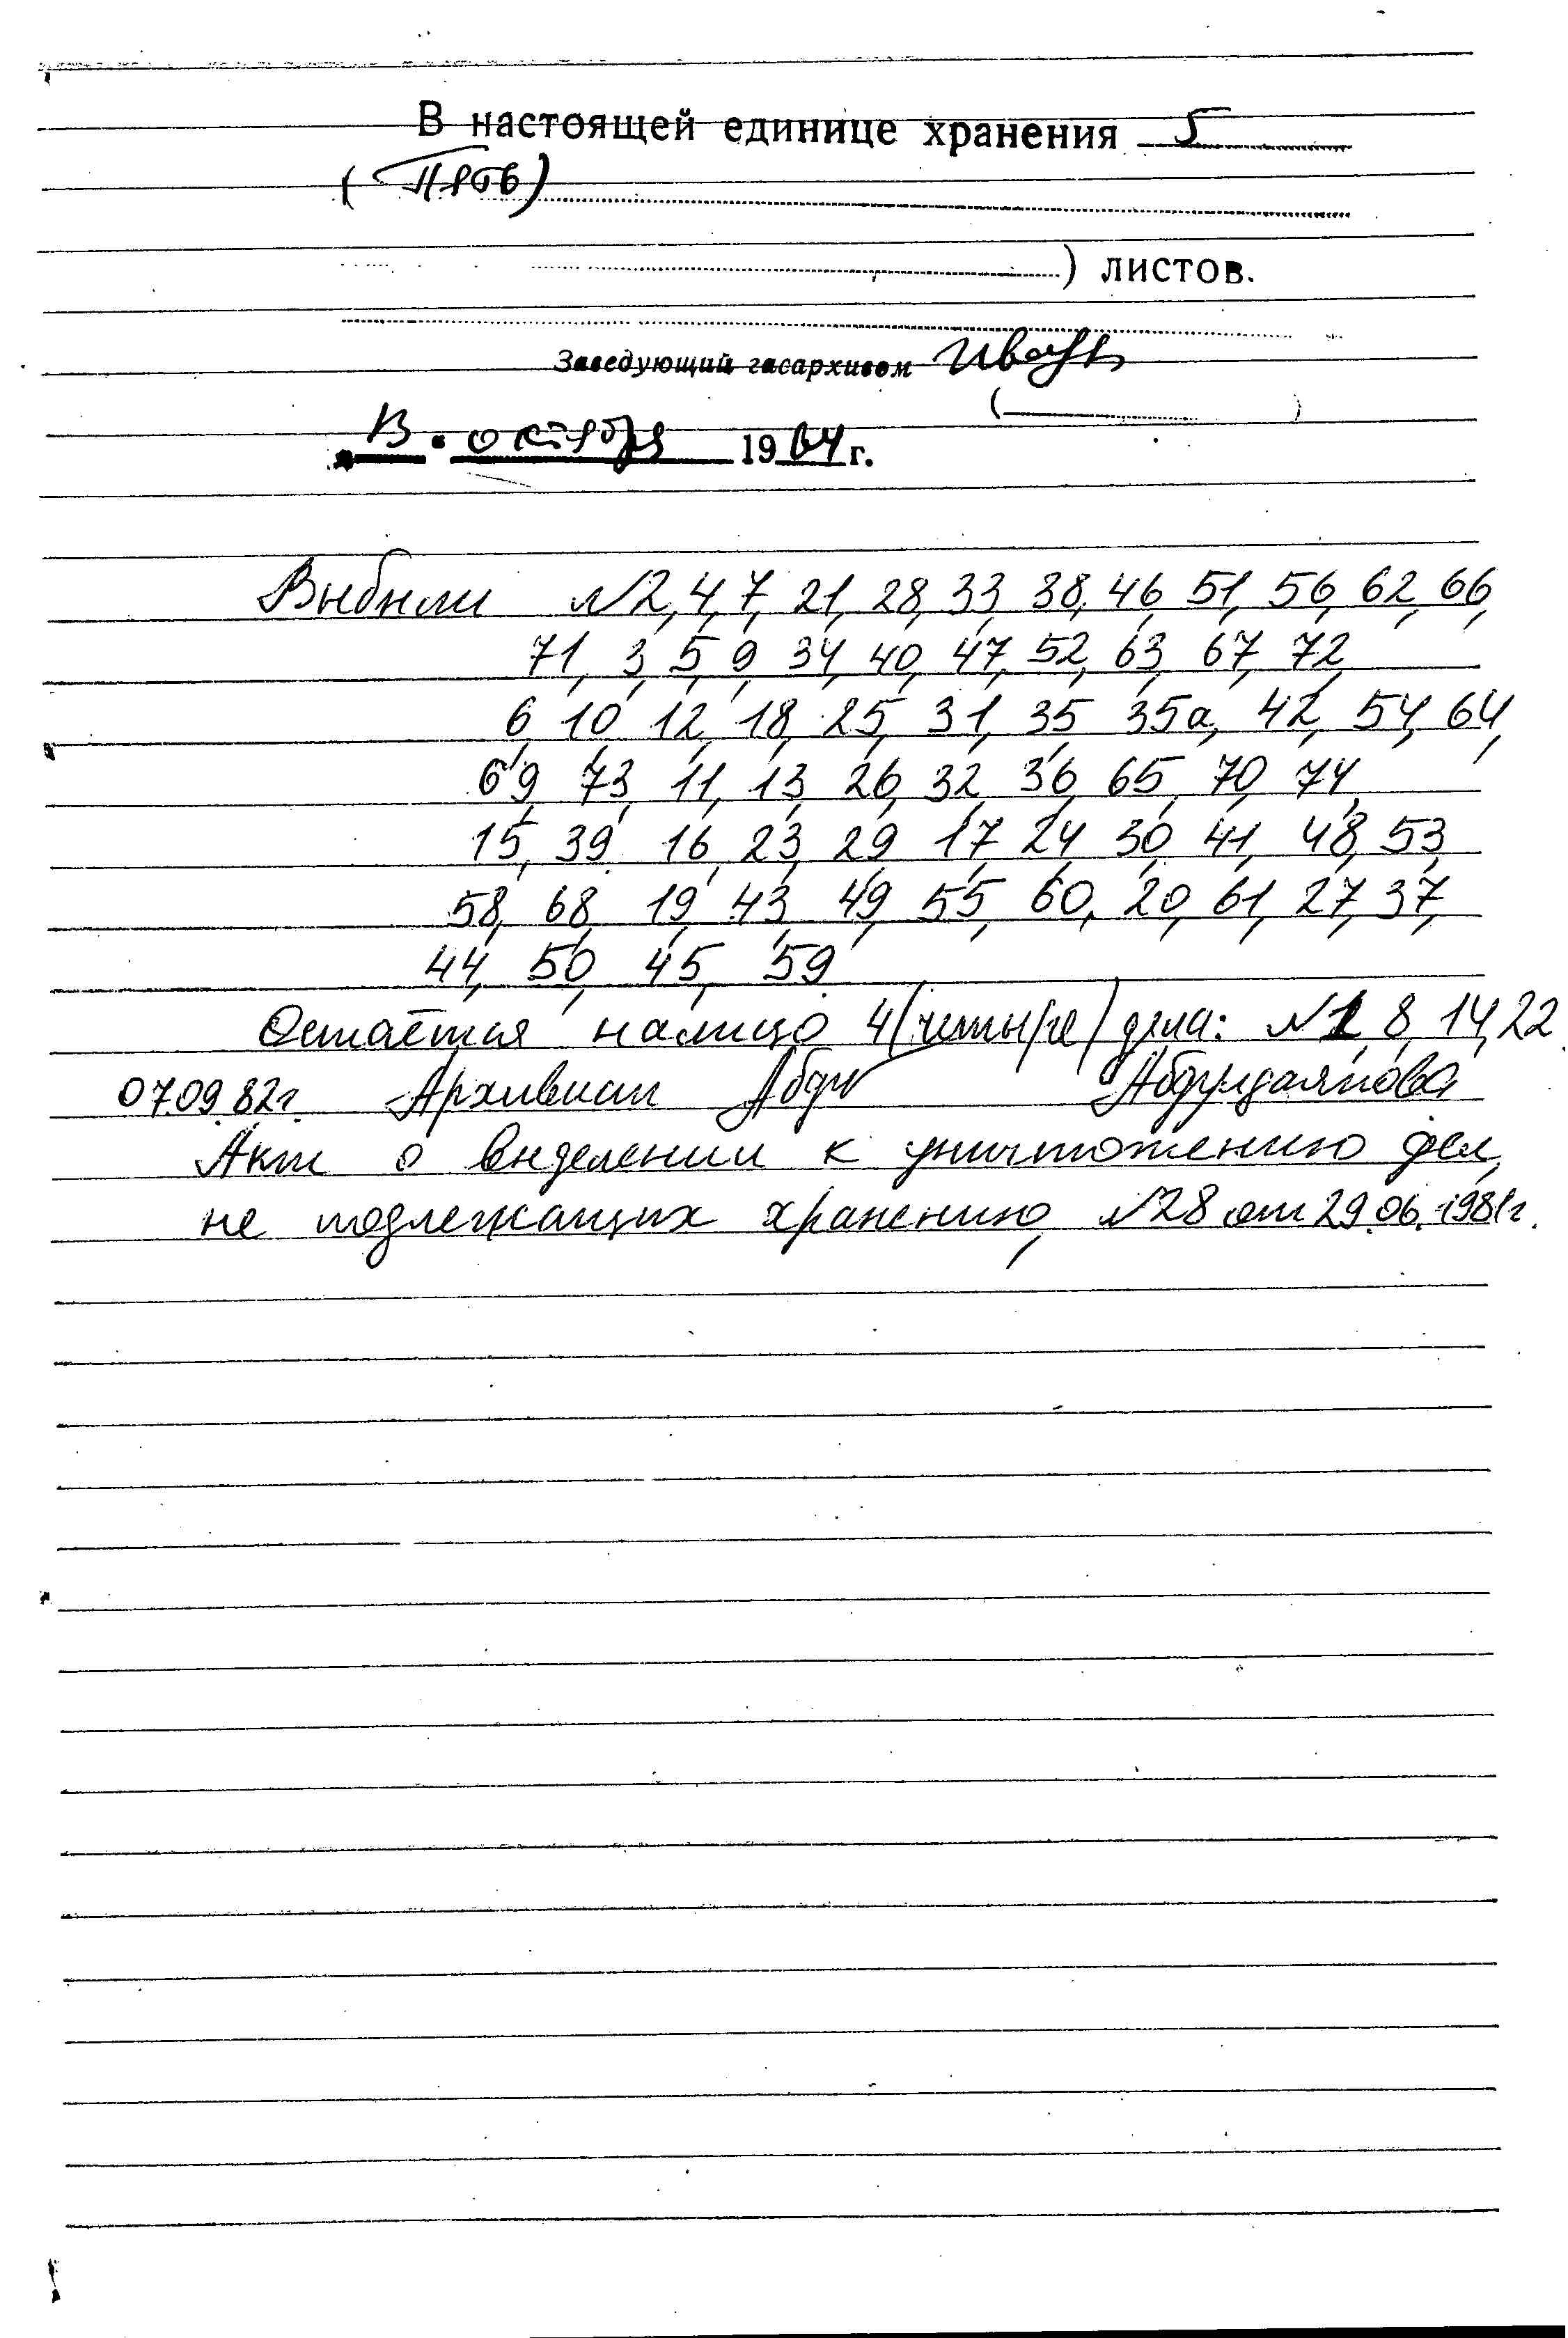 В настоящей единице хранения 5
(Пять)
) листов.
Заведующий госархивом
( )
13 октября 1964 г.
Выбыли №2, 4, 7, 21, 28, 33, 38, 46, 51, 56, 62, 66,
71, 3, 5, 9, 34, 40, 47, 52, 63, 67, 72,
6, 10, 12, 18, 25, 31, 35, 35а, 42, 54, 64,
69, 73, 11, 13, 26, 32, 36, 65, 70, 74,
15, 39, 16, 23, 29, 17, 24, 30, 41, 48, 53,
58, 68, 19, 43, 49, 55, 60, 20, 61, 27, 37,
44, 50, 45, 59.
Остаётся налицо 4 (четыре) дела: №1, 8, 14, 22
07.09.82г. Архивист
Акт о выделении к уничтожению дел,
не подлежащих хранению, №28 от 29.06.1981г.